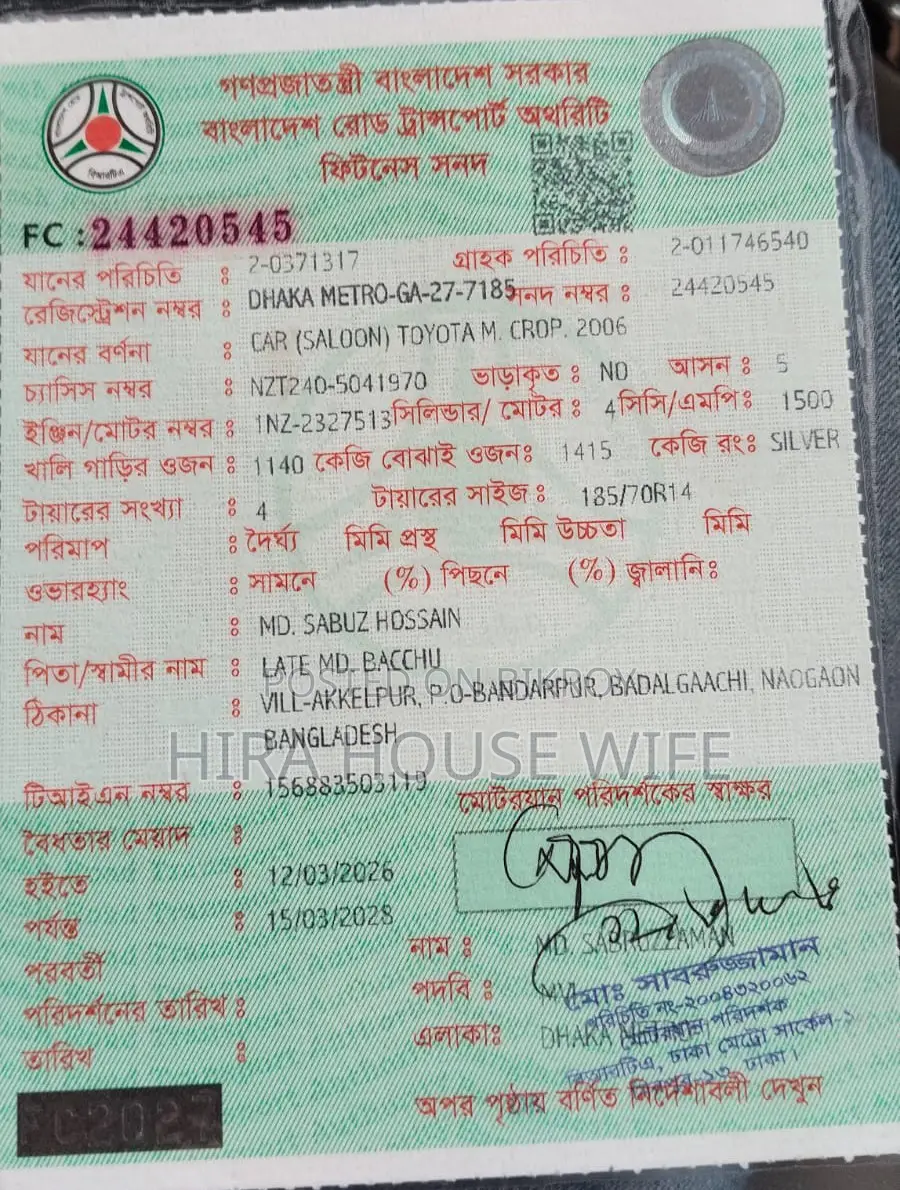 গণপ্রজাতন্ত্রী বাংলাদেশ সরকার
বাংলাদেশ রোড ট্রান্সপোর্ট অথরিটি
ফিটনেস সনদ
FC : 24420545
যানের পরিচিতি : 2-0371317 গ্রাহক পরিচিতি : 2-011746540
রেজিস্ট্রেশন নম্বর : DHAKA METRO-GA-27-7185 সনদ নম্বর : 24420545
যানের বর্ণনা : CAR (SALOON) TOYOTA M. CROP. 2006
চ্যাসিস নম্বর : NZT240-5041970 ভাড়াকৃত : NO আসন : 5
ইঞ্জিন/মোটর নম্বর : 1NZ-2327513 সিলিন্ডার/ মোটর : 4 সিসি/এমপি: 1500
খালি গাড়ির ওজন : 1140 কেজি বোঝাই ওজন: 1415 কেজি রং: SILVER
টায়ারের সংখ্যা : 4 টায়ারের সাইজ : 185/70R14
পরিমাপ : দৈর্ঘ্য মিমি প্রস্থ মিমি উচ্চতা মিমি
ওভারহ্যাং : সামনে (%) পিছনে (%) জ্বালানি:
নাম : MD. SABUZ HOSSAIN
পিতা/স্বামীর নাম : LATE MD. BACCHU
POSTED ON BIKROY
ঠিকানা : VILL-AKKELPUR, P.O-BANDARPUR, BADALGAACHI, NAOGAON
BANGLADESH
HIRA HOUSE WIFE
টিআইএন নম্বর : 156883503119 মোটরযান পরিদর্শকের স্বাক্ষর
বৈধতার মেয়াদ :
হইতে : 12/03/2026
পর্যন্ত : 15/03/2028
নাম : MD. SABRUZZAMAN
পরবর্তী
পরিদর্শনের তারিখ : পদবি :
মোঃ সাবরুজ্জামান
পরিচিতি নং-২০০৪৩২০০৬২
মোটরযান পরিদর্শক
তারিখ : এলাকা: DHAKA
বিআরটিএ, ঢাকা মেট্রো সার্কেল-১
ঢাকা।
অপর পৃষ্ঠায় বর্ণিত নির্দেশাবলী দেখুন
FC2027